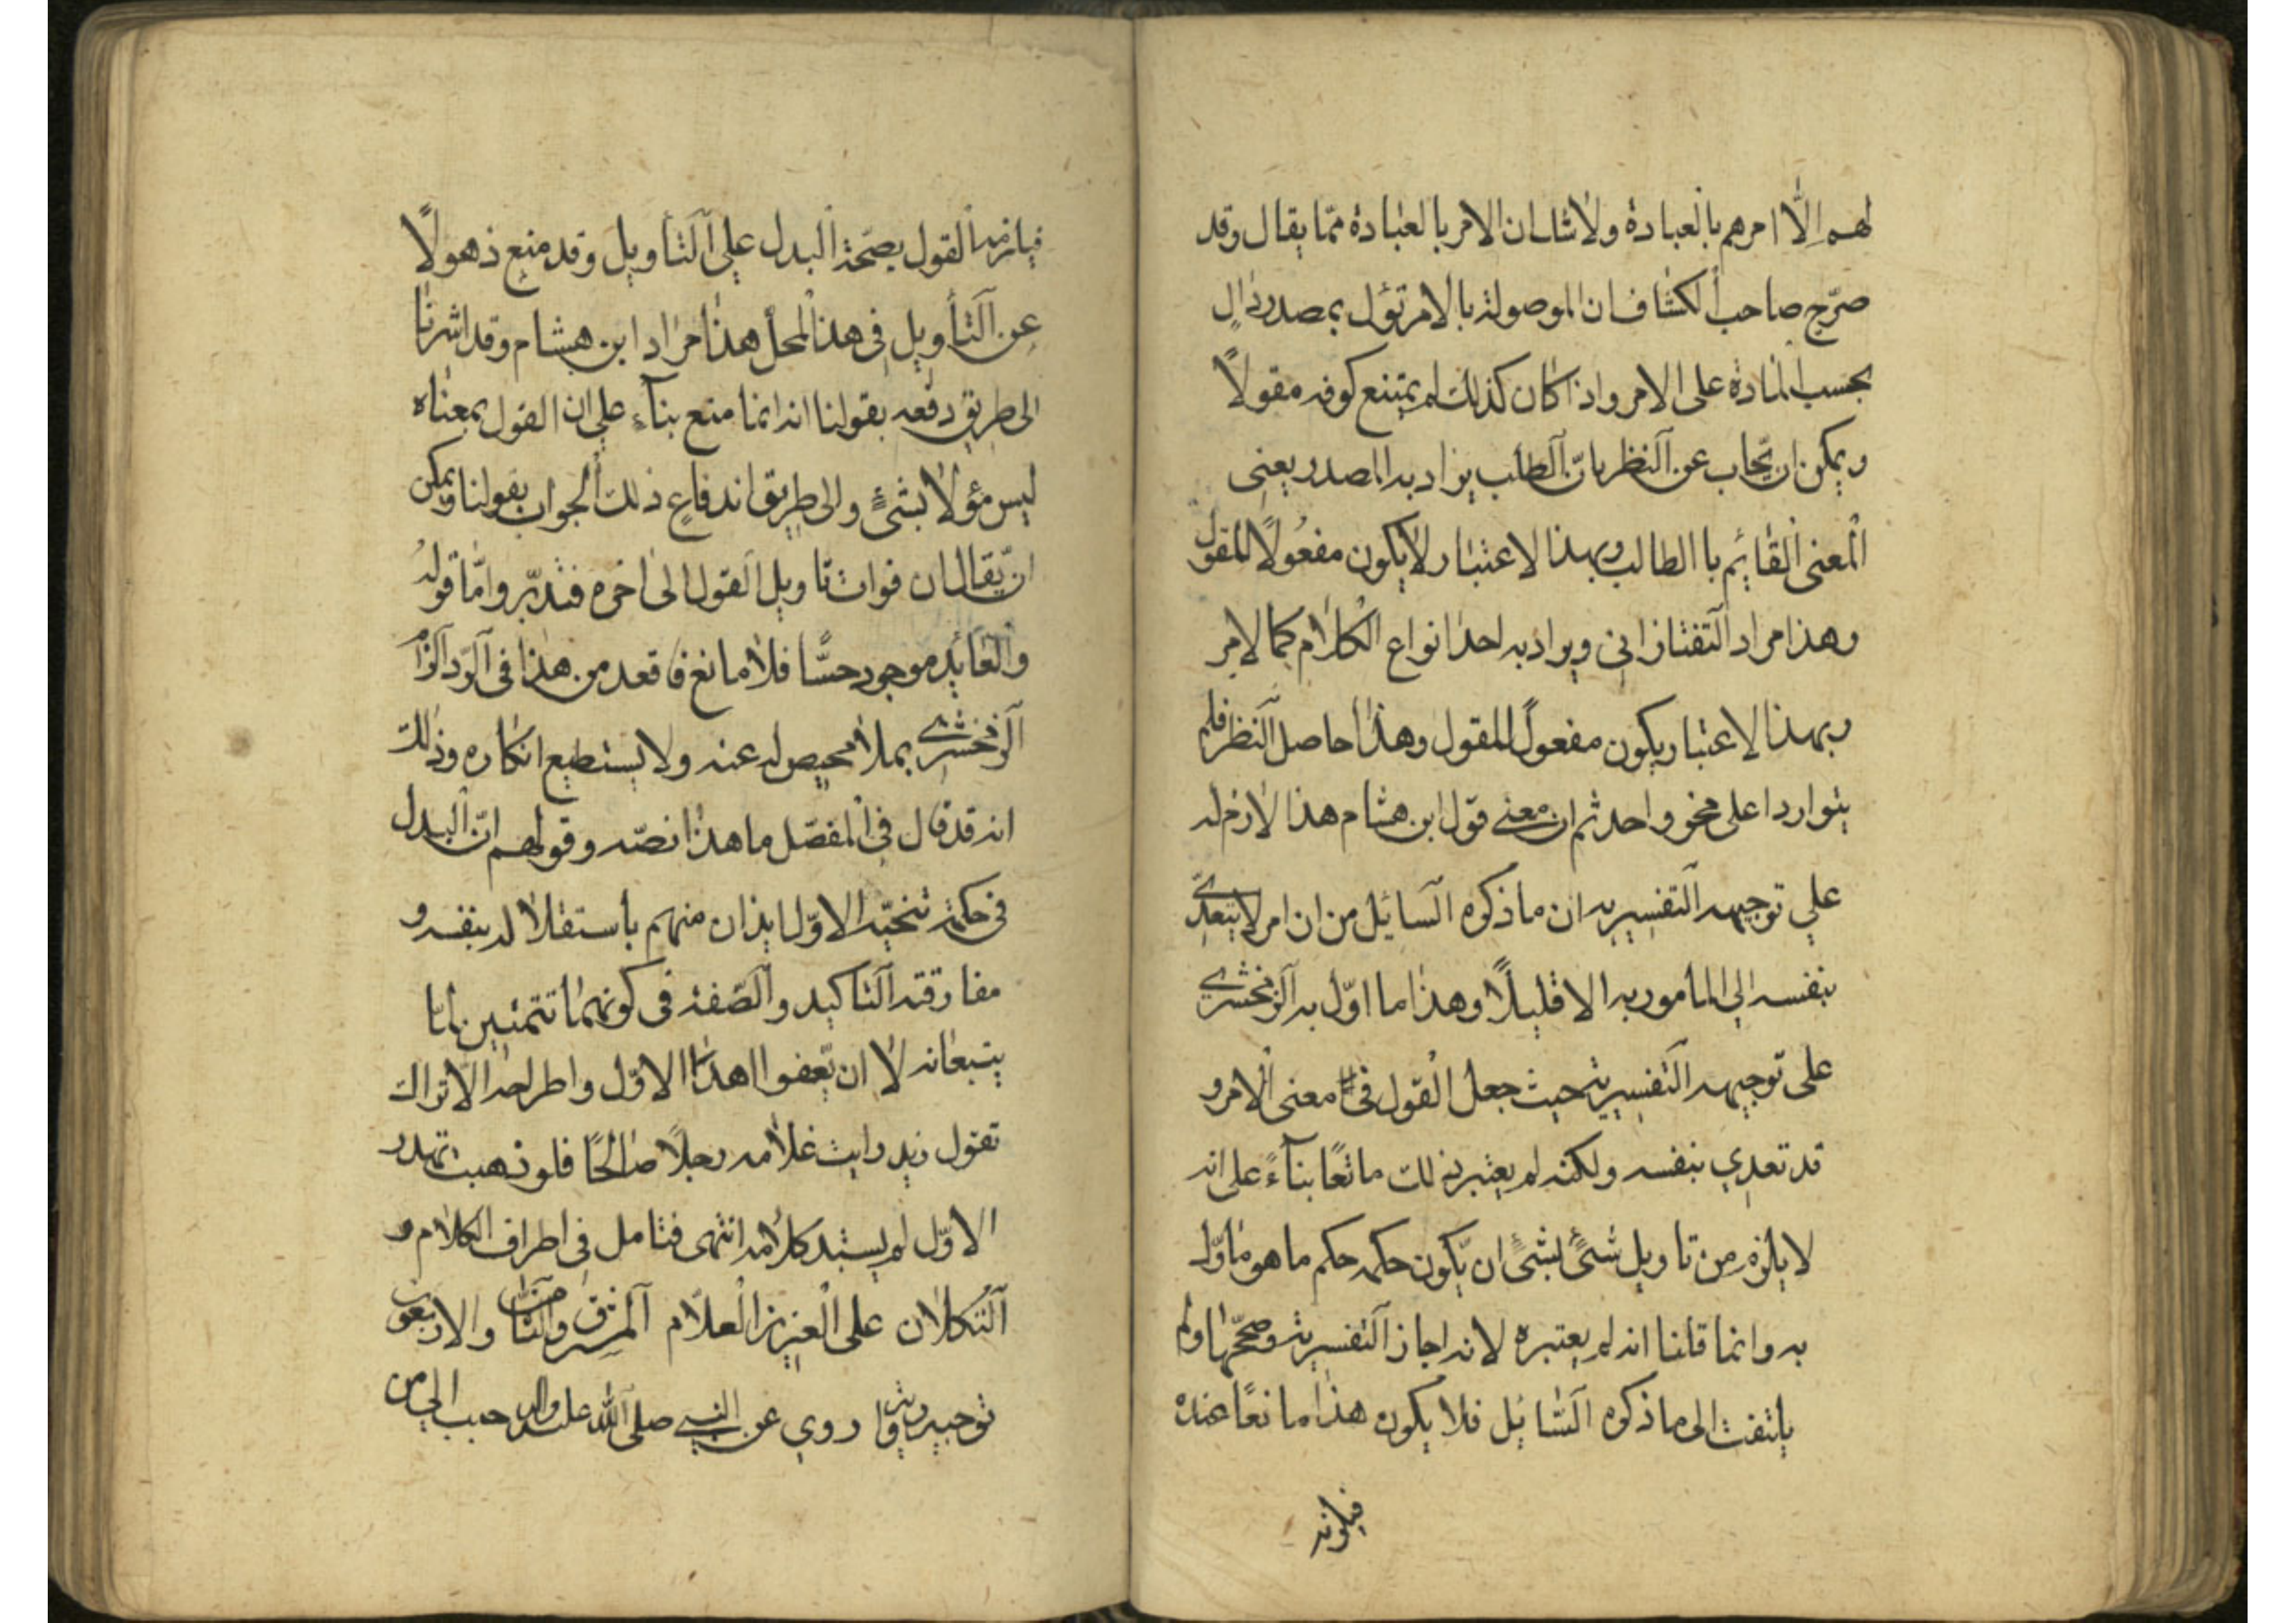 لهم الّا امرهم بالعبادة ولاشك ان الامر بالعبادة ممّا يقال وقد
صرّح صاحب الكشاف ان الموصولة بالامر تؤل بمصدر دالٍ
بحسب المادة على الامر واذا كان كذلك لم يمتنع كونه مقولاً
ويمكن ان يّجاب عن النظر بانّ الطلب يراد به المصدر يعنى
المعنى القائم با الطالب وبهذا لاعتبار لايكون مفعُولاً للمقول
وهذا مراد التفتازانى ويراد به احد انواع الكلام كما لامر
وبهذا لاعتبار يكون مفعولاً للمقول وهذا حاصل النظر فلم
يتواردا على محز واحد ثم ان معنى قول ابن هشام هذا لازم له
على توجيهه التفسيريه ان ما ذكره السائل من ان امر لايتعدّى
بنفسه الى المامور به الا قليلاً وهذا ما اوّل به الزمخشري
على توجيهه التفسيرية حيث جعل القول فى معنى الامر و
قد تعدي بنفسه ولكنه لم يعتبر ذلك مانعًا بناءً على انه
لا يلزم من تاويل شئٍ بشئٍ ان يّكون حكمه حكم ما هو ماوّل
به وانما قلنا انه لم يعتبره لانه اجاز التفسيرية وصحّحها ولم
يلتفت الى ما ذكره السّائل فلا يكون هذا مانعًا عنده
فيلزمه
فيلزمه القول بصحّة البدل على التاويل وقد منع ذهولاً
عن التأويل فى هذ المحل هذا مراد ابن هشام وقد اشرنا
الى طريق دفعه بقولنا انه انما منع بناءً على ان القول بمعناه
ليس مؤولا بشئٍ والى طريق اندفاعِ ذلك الجواب بقولنا ويمكن
ان يّقال ان فوات تاويل القول الى اخره فتدبّر وامّا قوله
والعائد موجود حسًّا فلا مانع فاقعد من هذا فى الرّد الزام
الزمخشري بملا محيص له عنه ولا يستطيع انكاره وذلك
انه قد قال فى المفصّل ما هذا نصّه وقولهم انّ البدل
فى حكم تنحية الاوّل ايذان منهم باستقلاله بنفسه و
مفارقته التاكيد والصّفة فى كونهما تتمتين لما
يتبعانه لا ان يّعفوا اهذا الاوّل واطراحه الا تراك
تقول زيد رايت غلامه رجلاً صالحًا فلو ذهبت تهدر
الاوّل لم يستبد كلامه انتهى فتامل فى اطراف الكلام و
التكلان على العزيز العلاّم المشرق والثامن والاربعون
توجيه رواية روي عن النبى صلى الله عليه واله حبب الى من